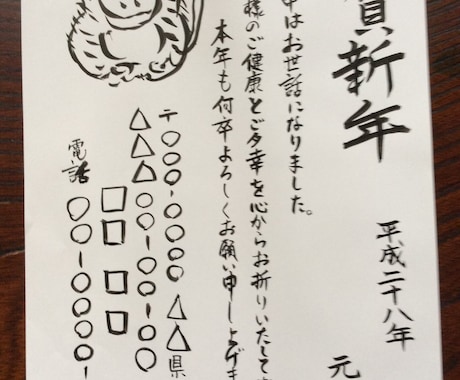 賀新年
平成二十八年
元
中はお世話になりました。
様のご健康とご多幸を心からお祈りいたして
本年も何卒よろしくお願い申し上げま
〒○○○-○○○○ △△県
△△△○○○-○○
□□ □□
電話○○-○○○○-